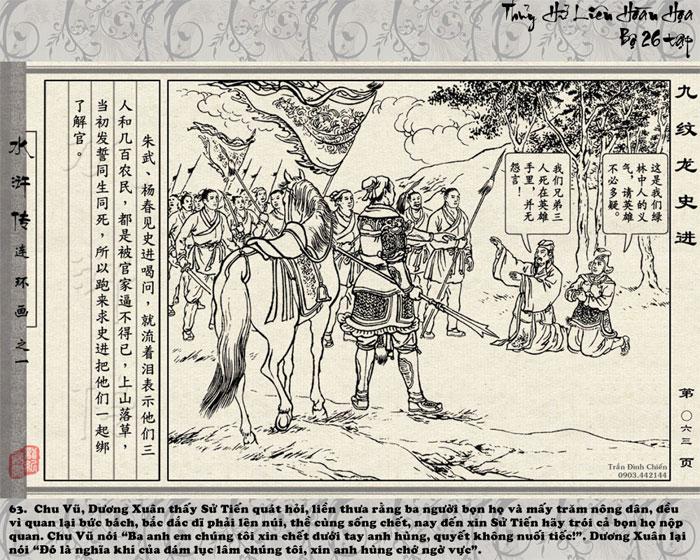 Thủy Hử Liên Hoàn Họa
Bộ 26 tập
九纹龙史进
第〇六三页
水浒传连环画之一
朱武、杨春见史进喝问，就流着泪表示他们三
人和几百农民，都是被官家逼不得已，上山落草，
当初发誓同生同死，所以跑来求史进把他们一起绑
了解官。
这是我们绿
林中人的义
气，请英雄
不必多疑。
我们兄弟三
人死在英雄
手里，并无
怨言！
Trần Đình Chiến
0903.442144
63. Chu Vũ, Dương Xuân thấy Sử Tiến quát hỏi, liền thưa rằng ba người bọn họ và mấy trăm nông dân, đều
vì quan lại bức bách, bắc đắc dĩ phải lên núi, thề cùng sống chết, nay đến xin Sử Tiến hãy trói cả bọn họ nộp
quan. Chu Vũ nói "Ba anh em chúng tôi xin chết dưới tay anh hùng, quyết không nuối tiếc!". Dương Xuân lại
nói "Đó là nghĩa khí của đám lục lâm chúng tôi, xin anh hùng chớ ngờ vực".